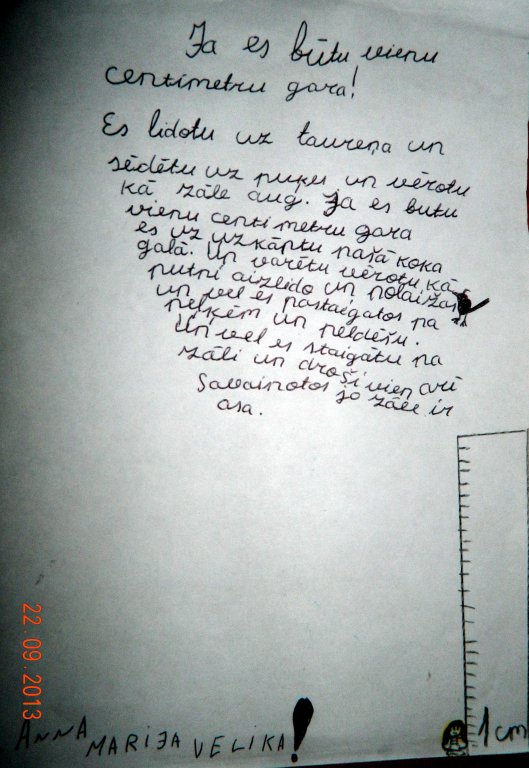 Ja es būtu vienu
centimetru gara!
Es lidotu uz taureņa un
sēdētu uz puķu un vērotu
kā zāle aug. Ja es butu
vienu centimetru gara
es uz uzkāptu pašā koka
galā. Un varētu vērotu, kā
putni aizlido un nolaižas
un vel es pastaigatos pa
peļķēm un peldēšu.
Un vel es staigātu pa
zāli un droši vien arī
Savainotos jo zāle ir
asa.
1 cm
ANNA MARIJA VELIKA!
22.09.2013